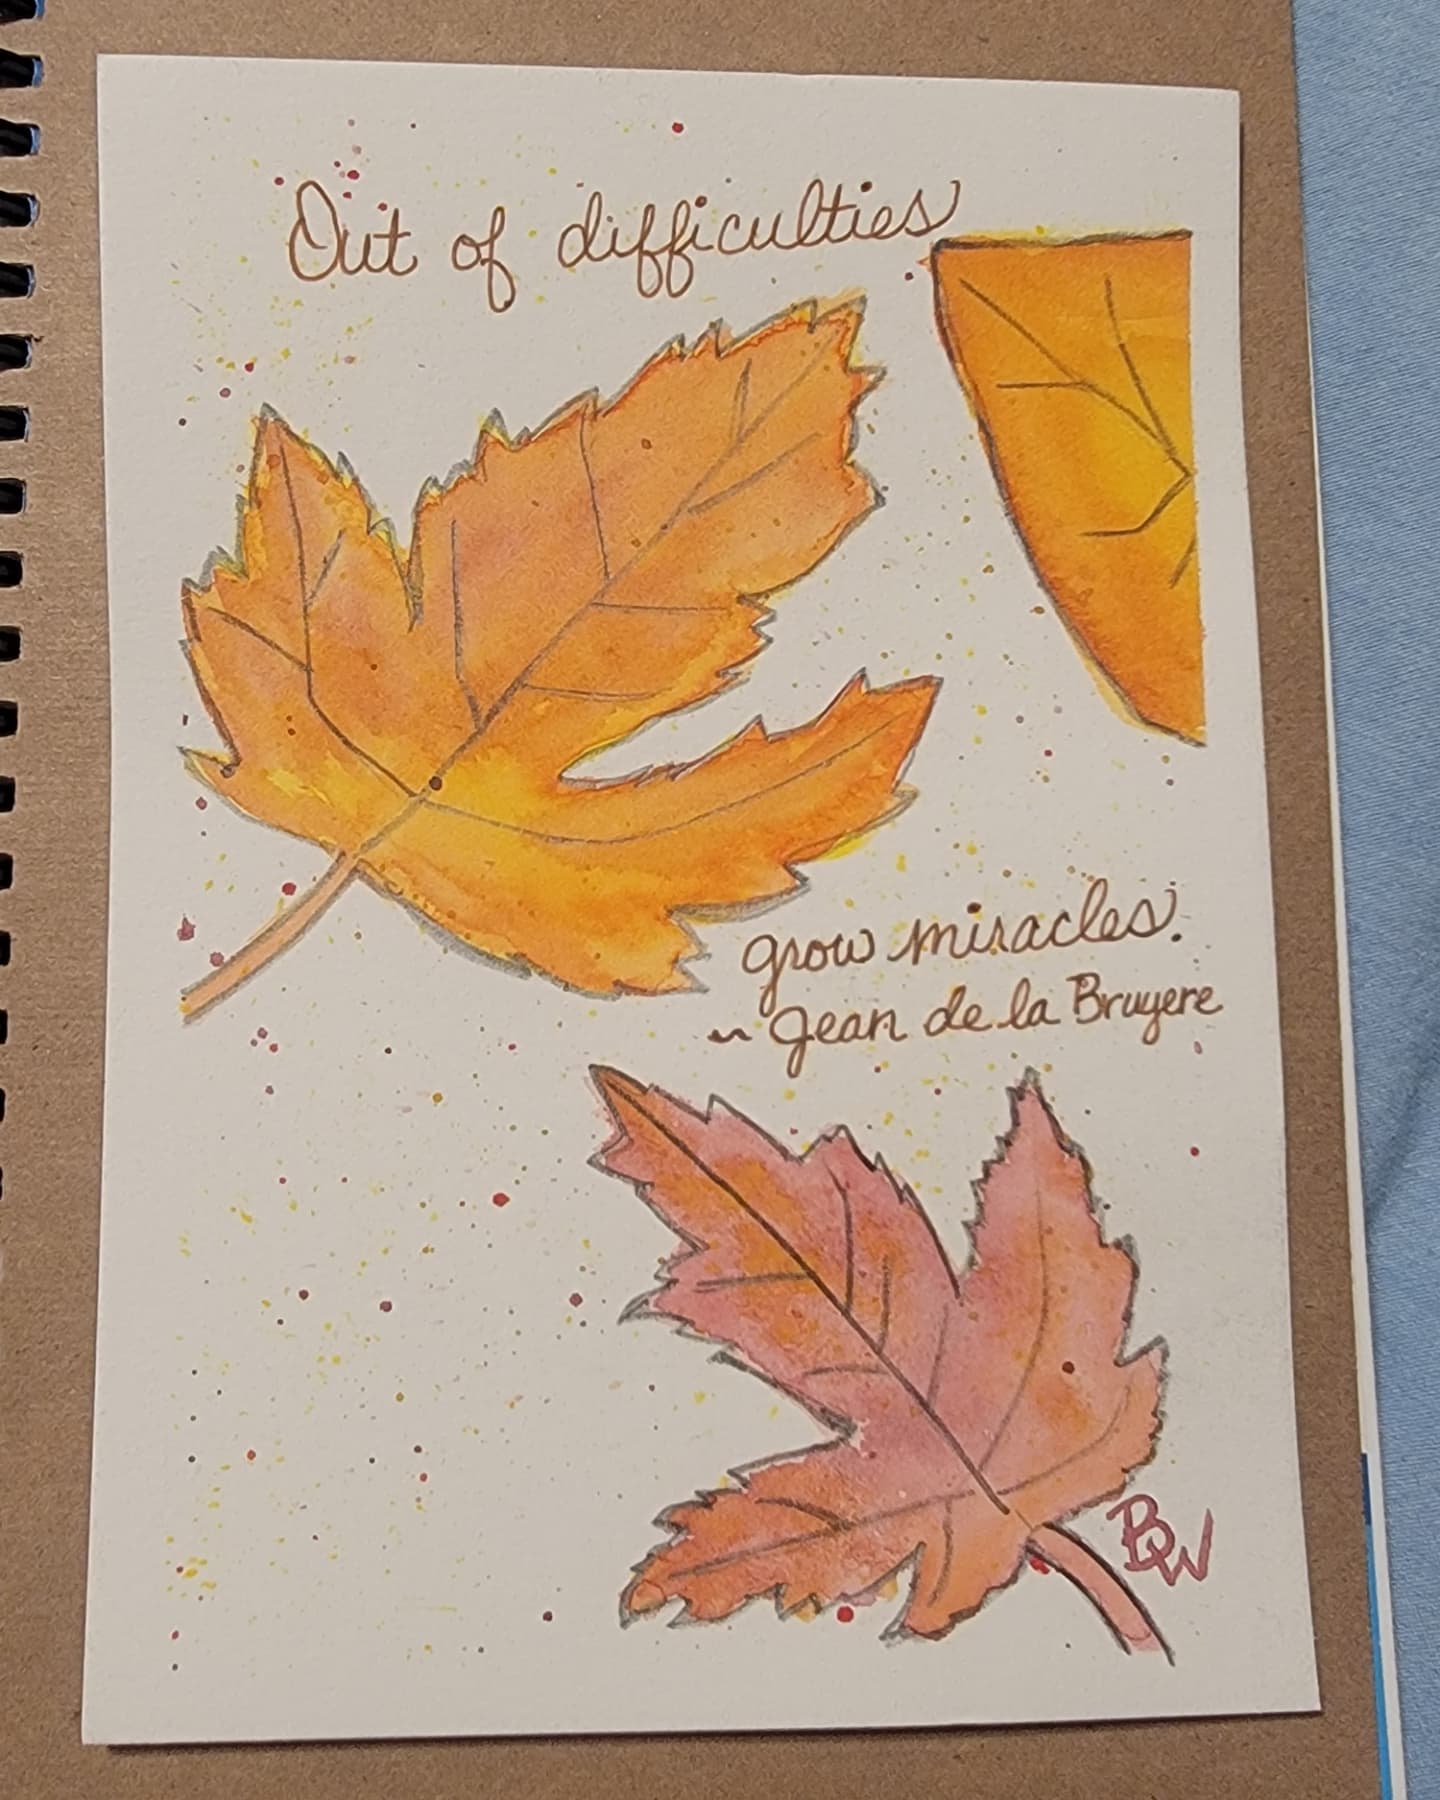 Out of difficulties
grow miracles.
~ Jean de la Bruyere
BW